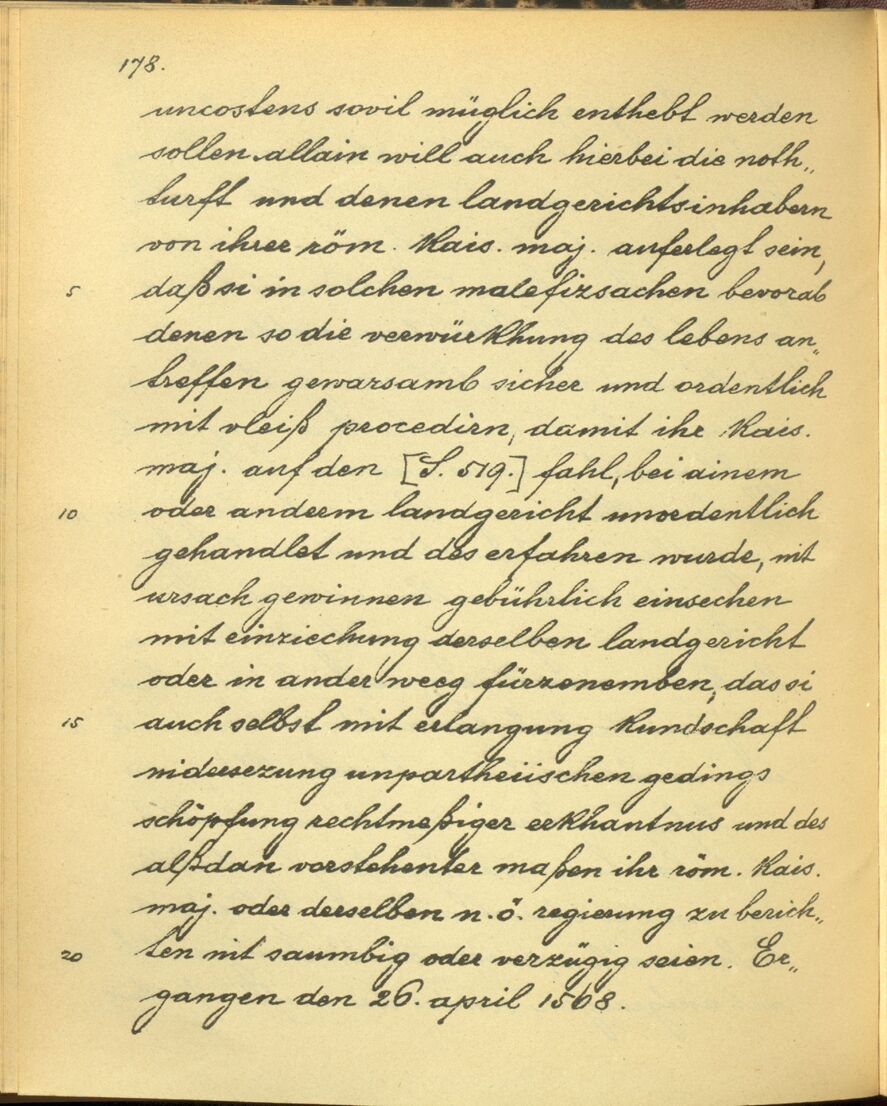 178.
uncostens sovil müglich enthebt werden
sollen. allain will auch hierbei die noth„
turft und denen landgerichtsinhabern
von ihrer röm. Kais. maj. auferlegt sein,
5 daß si in solchen malefizsachen bevorab
denen so die verwürkhung des lebens an„
treffen gewarsamb sicher und ordentlich
mit vleiß procedirn, damit ihr Kais.
maj. auf den [S. 519.] fahl, bei ainem
10 oder anderm landgericht unordentlich
gehandlet und des erfahren wurde, nit
ursach gewinnen gebührlich einsechen
mit einziechung derselben landgericht
oder in ander weeg fürzenemben, das si
15 auch selbst mit erlangung Kundschaft
nidersezung unpartheiischen gedings
schöpfung rechtmeßiger erkhantnus und des
alßdan vorstehenter maßen ihr röm. Kais.
maj. oder derselben n.ö. regierung zu berich„
20 ten nit saumbig oder verzügig seien. Er„
gangen den 26. april 1568.